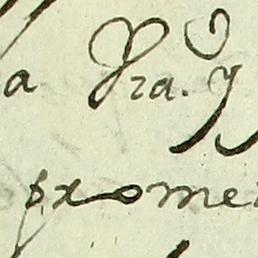 a Vra. y
prome